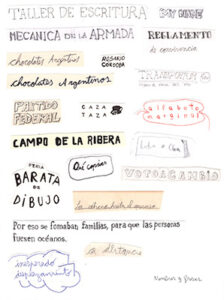 TALLER DE ESCRITURA
MECANICA DE LA ARMADA
REGLAMENTO
de convivencia
chocolates Argentinos
ROSARIO
CORDOBA
chocolates Argentinos
PARTIDO
FEDERAL
CAZA
TAZA
alfabeto
marginal
CAMPO DE LA RIBERA
FERIA
BARATA
DE
DIBUJO
Qué copiar
VOTO A CAMBIO
Por eso se fomaban, familias, para que las personas
fuesen océanos.
inesperado
desplazamiento
la distancia
Nombres y frases